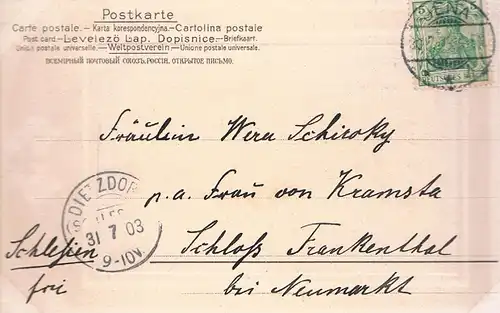 Postkarte
Carte postale. — Karta korespondencyjna. — Cartolina postale
Post card. — Levelező Lap. Dopisnice — Briefkaart.
Union postale universelle. — Weltpostverein — Unione postale universale.
ВСЕМІРНЫЙ ПОЧТОВЫЙ СОЮЗЪ. РОССІЯ. ОТКРЫТОЕ ПИСЬМО.
JENA
Fräulein Wera Schiroky
p. a. Frau von Kramsta
Schloß Frankenthal
bei Neumarkt
Schlesien
frei
DIETZDOR
31 7 03
9-10V.